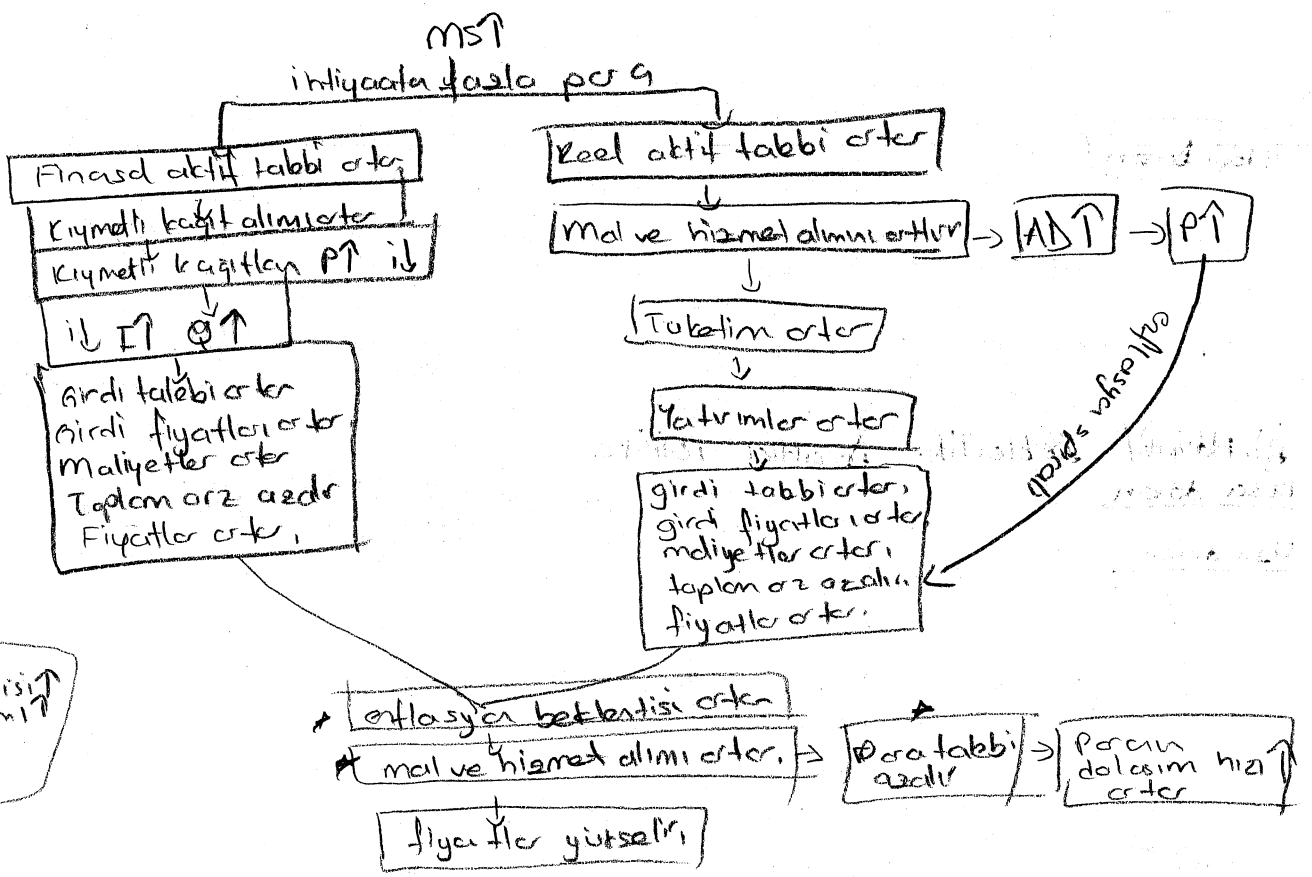 MS↑
ihtiyaçtan fazla para
Finansal aktif talebi artar
Kıymetli kağıt alımı artar
Kıymetli kağıtların P↑ i↓
i↓ I↑ Q↑
Girdi talebi artar
Girdi fiyatları artar
Maliyetler artar
Toplam arz azalır
Fiyatlar artar.
Reel aktif talebi artar
Mal ve hizmet alımını arttırır → AD↑ → P↑
Tüketim artar
Yatırımlar artar
girdi talebi artar,
girdi fiyatları artar
maliyetler artar,
toplam arz azalır.
fiyatlar artar.
enflasyon spirali
enflasyon beklentisi artar
mal ve hizmet alımı artar. → Para talebi
azalır → Paranın
dolaşım hızı ↑
artar
fiyatlar yükselir.
isi↑
mı↑